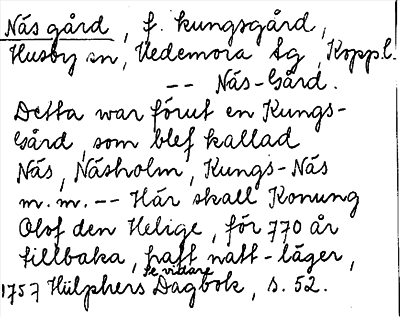 Näs gård, f. kungsgård,
Husby sn, Hedemora tg, Koppl.
-- Näs-Gård.
Detta war förut en Kungs-
Gård, som blef kallad
Näs, Näsholm, Kungs-Näs
m.m. -- Här skall Konung
Olof den Helige, för 770 år
tillbaka, haft natt-läger,
se vidare
1757 Hülphers Dagbok, s. 52.